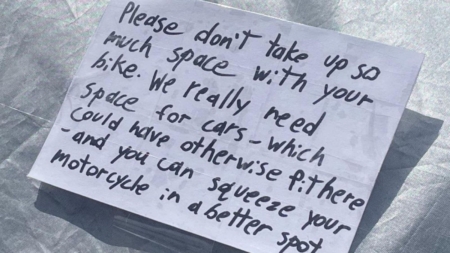 Please don't take up so
much space with your
bike. We really need
space for cars - which
could have otherwise fit here
- and you can squeeze your
motorcycle in a better spot